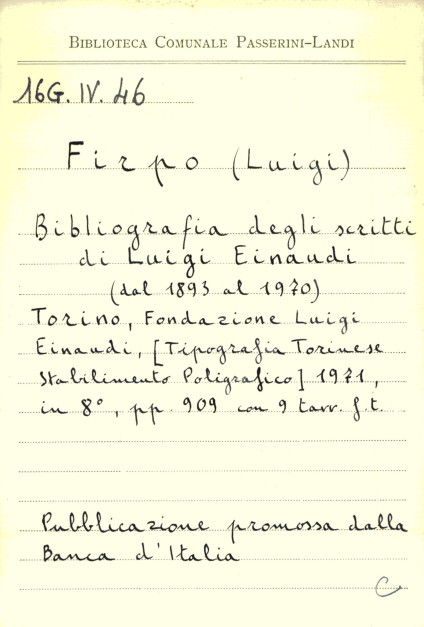 BIBLIOTECA COMUNALE PASSERINI-LANDI
16G. IV. 46
Firpo (Luigi)
Bibliografia degli scritti
di Luigi Einaudi
(dal 1893 al 1970)
Torino, Fondazione Luigi
Einaudi, [Tipografia Torinese
Stabilimento Poligrafico] 1971,
in 8°, pp. 909 con 9 tavv. f.t.
Pubblicazione promossa dalla
Banca d'Italia
C